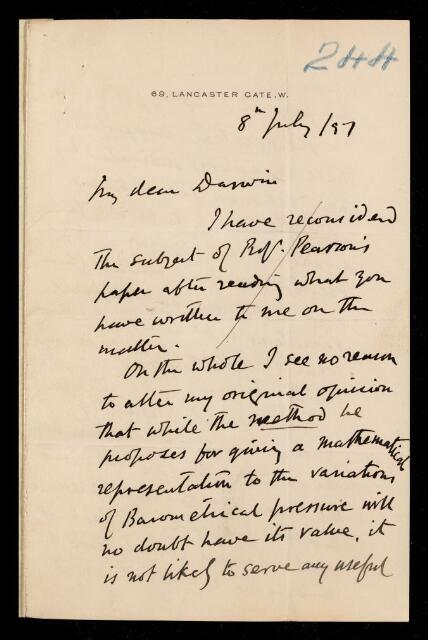 244
69, LANCASTER GATE. W.
8th July /97
My dear Darwin
I have reconsidered
the subject of Prof. Pearson's
paper after reading what you
have written to me on the
matter.
On the whole I see no reason
to alter my original opinion
that while the method he
proposes for giving a mathematical
representation to the variations
of Barometrical pressure will
no doubt have its value, it
is not likely to serve any useful